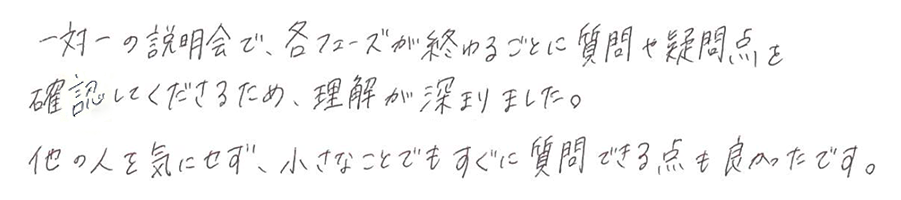 一対一の説明会で、各フェーズが終わるごとに質問や疑問点を
確認してくださるため、理解が深まりました。
他の人を気にせず、小さなことでもすぐに質問できる点も良かったです。